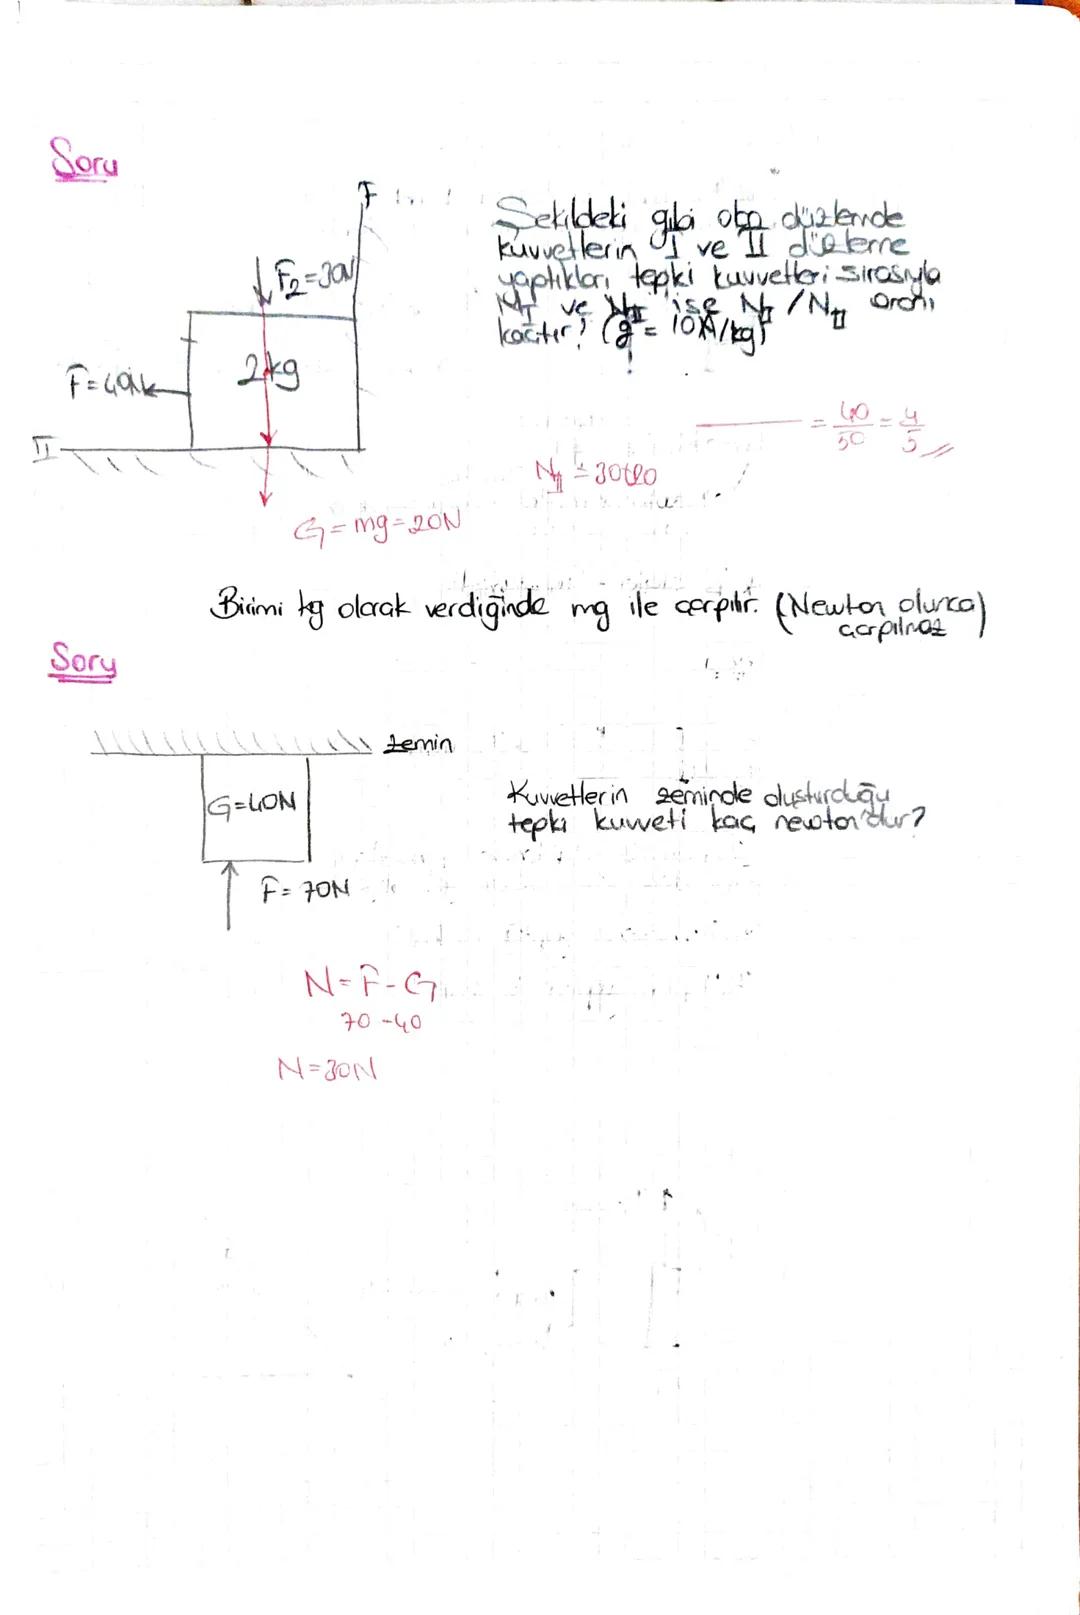 Soru
F
F₂=30N
F=40N
2kg
II
G=mg=20N
Şekildeki gibi olan düzlemde
kuvvetlerin I ve II düzleme
yaptıkları tepki kuvvetleri sırasıyla
ve ise / N_II oranı
kaçtır? (g = 10N/kg)
= 40/50 = 4/5
N_II = 30+20
Birimi kg olarak verdiğinde mg ile çarpılır. (Newton olunca)
çarpılmaz
Soru
zemin
G=40N
F=70N
Kuvvetlerin zeminde oluşturduğu
tepki kuvveti kaç newton'dur?
N=F-G
70-40
N=30N